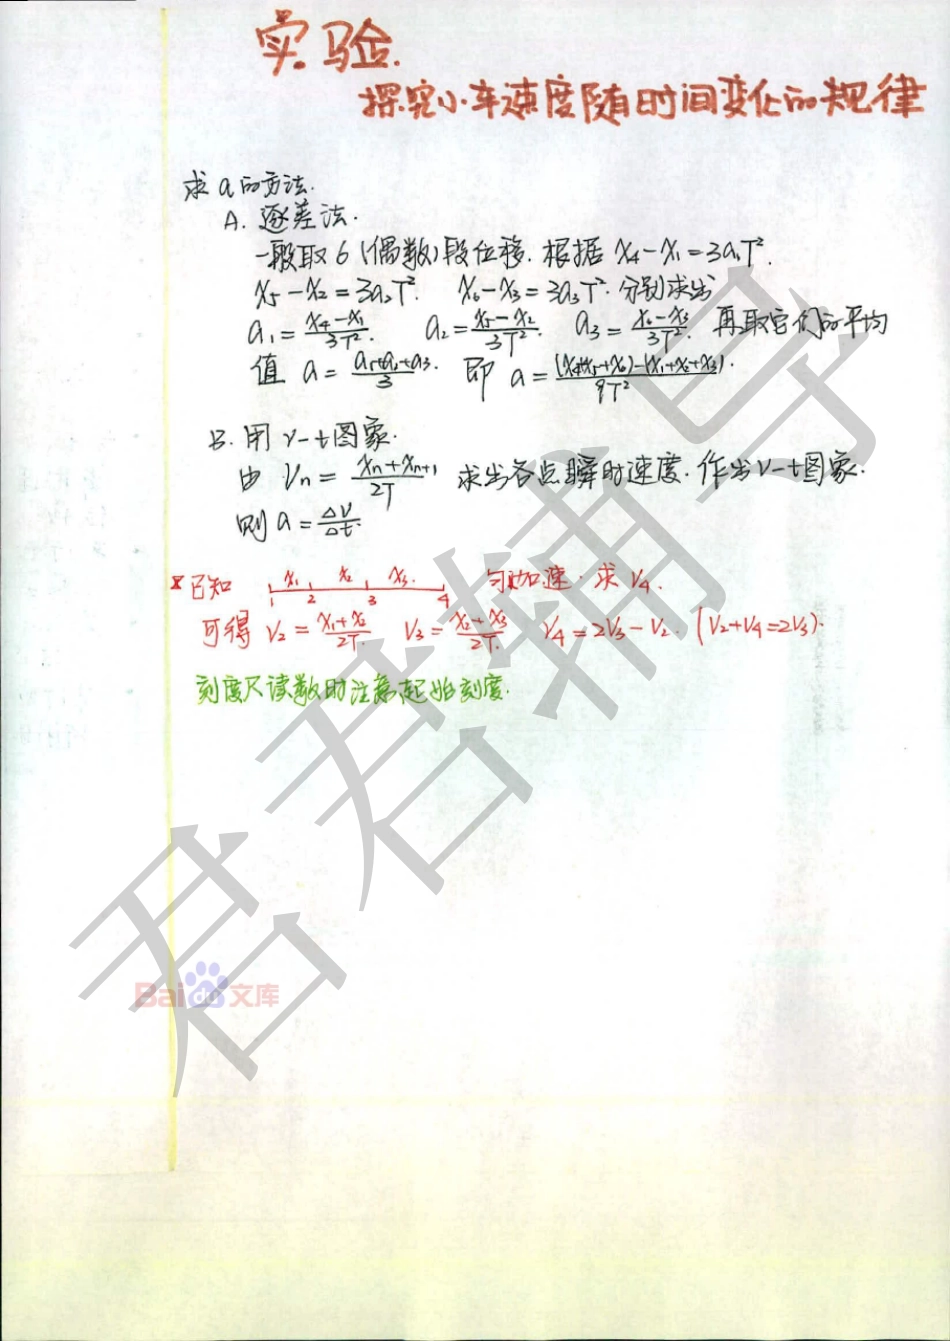 实验.
探究小车速度随时间变化的规律
求a的方法.
A. 逐差法.
一般取6(偶数)段位移. 根据 x₄-x₁=3a₁T².
x₅-x₂=3a₂T². x₆-x₃=3a₃T². 分别求出
a₁=(x₄-x₁)/3T². a₂=(x₅-x₂)/3T². a₃=(x₆-x₃)/3T². 再取它们的平均
值 a=(a₁+a₂+a₃)/3. 即 a=((x₄+x₅+x₆)-(x₁+x₂+x₃))/9T².
B. 用v-t图象.
由 Vn=(xn+xn+1)/2T 求出各点瞬时速度. 作出v-t图象.
则 a=△V/△t.
※已知 x₁ x₂ x₃. 匀加速. 求 V₄.
1 2 3 4
可得 V₂=(x₁+x₂)/2T. V₃=(x₂+x₃)/2T. V₄=2V₃-V₂. (V₂+V₄=2V₃).
刻度尺读数时注意起始刻度.
君君辅导
Baidu文库